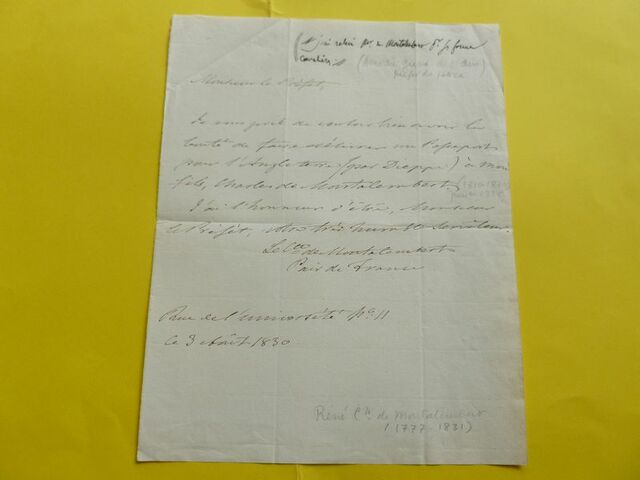 Monsieur le Préfet,
Je vous prie de vouloir bien avoir la
bonté de faire délivrer un Passeport
pour l'Angleterre (par Dieppe) à mon
fils, Charles de Montalembert.
(1810-1870)
J'ai l'honneur d'être, Monsieur
le Préfet, votre très humble serviteur.
Le Cte de Montalembert
Pair de France
Rue de l'université No 11
Ce 3 août 1830
René Cte de Montalembert
(1777-1831)